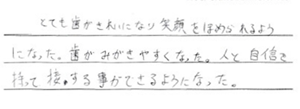 とても歯がきれいになり笑顔をほめられるよう
になった。歯がみがきやすくなった。人と自信を
持って接する事ができるようになった。